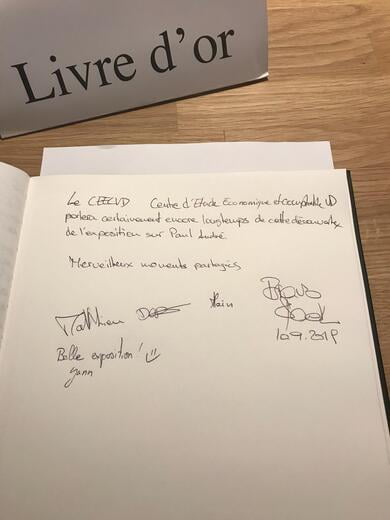 Livre d'or
Le CEECVD Centre d'Etude Economique et comptable VD
parlera certainement encore longtemps de cette découverte
de l'exposition sur Paul André.
Merveilleux moments partagés
Matthieu Alain Bravo
10.9.2019
Belle exposition!
Yann